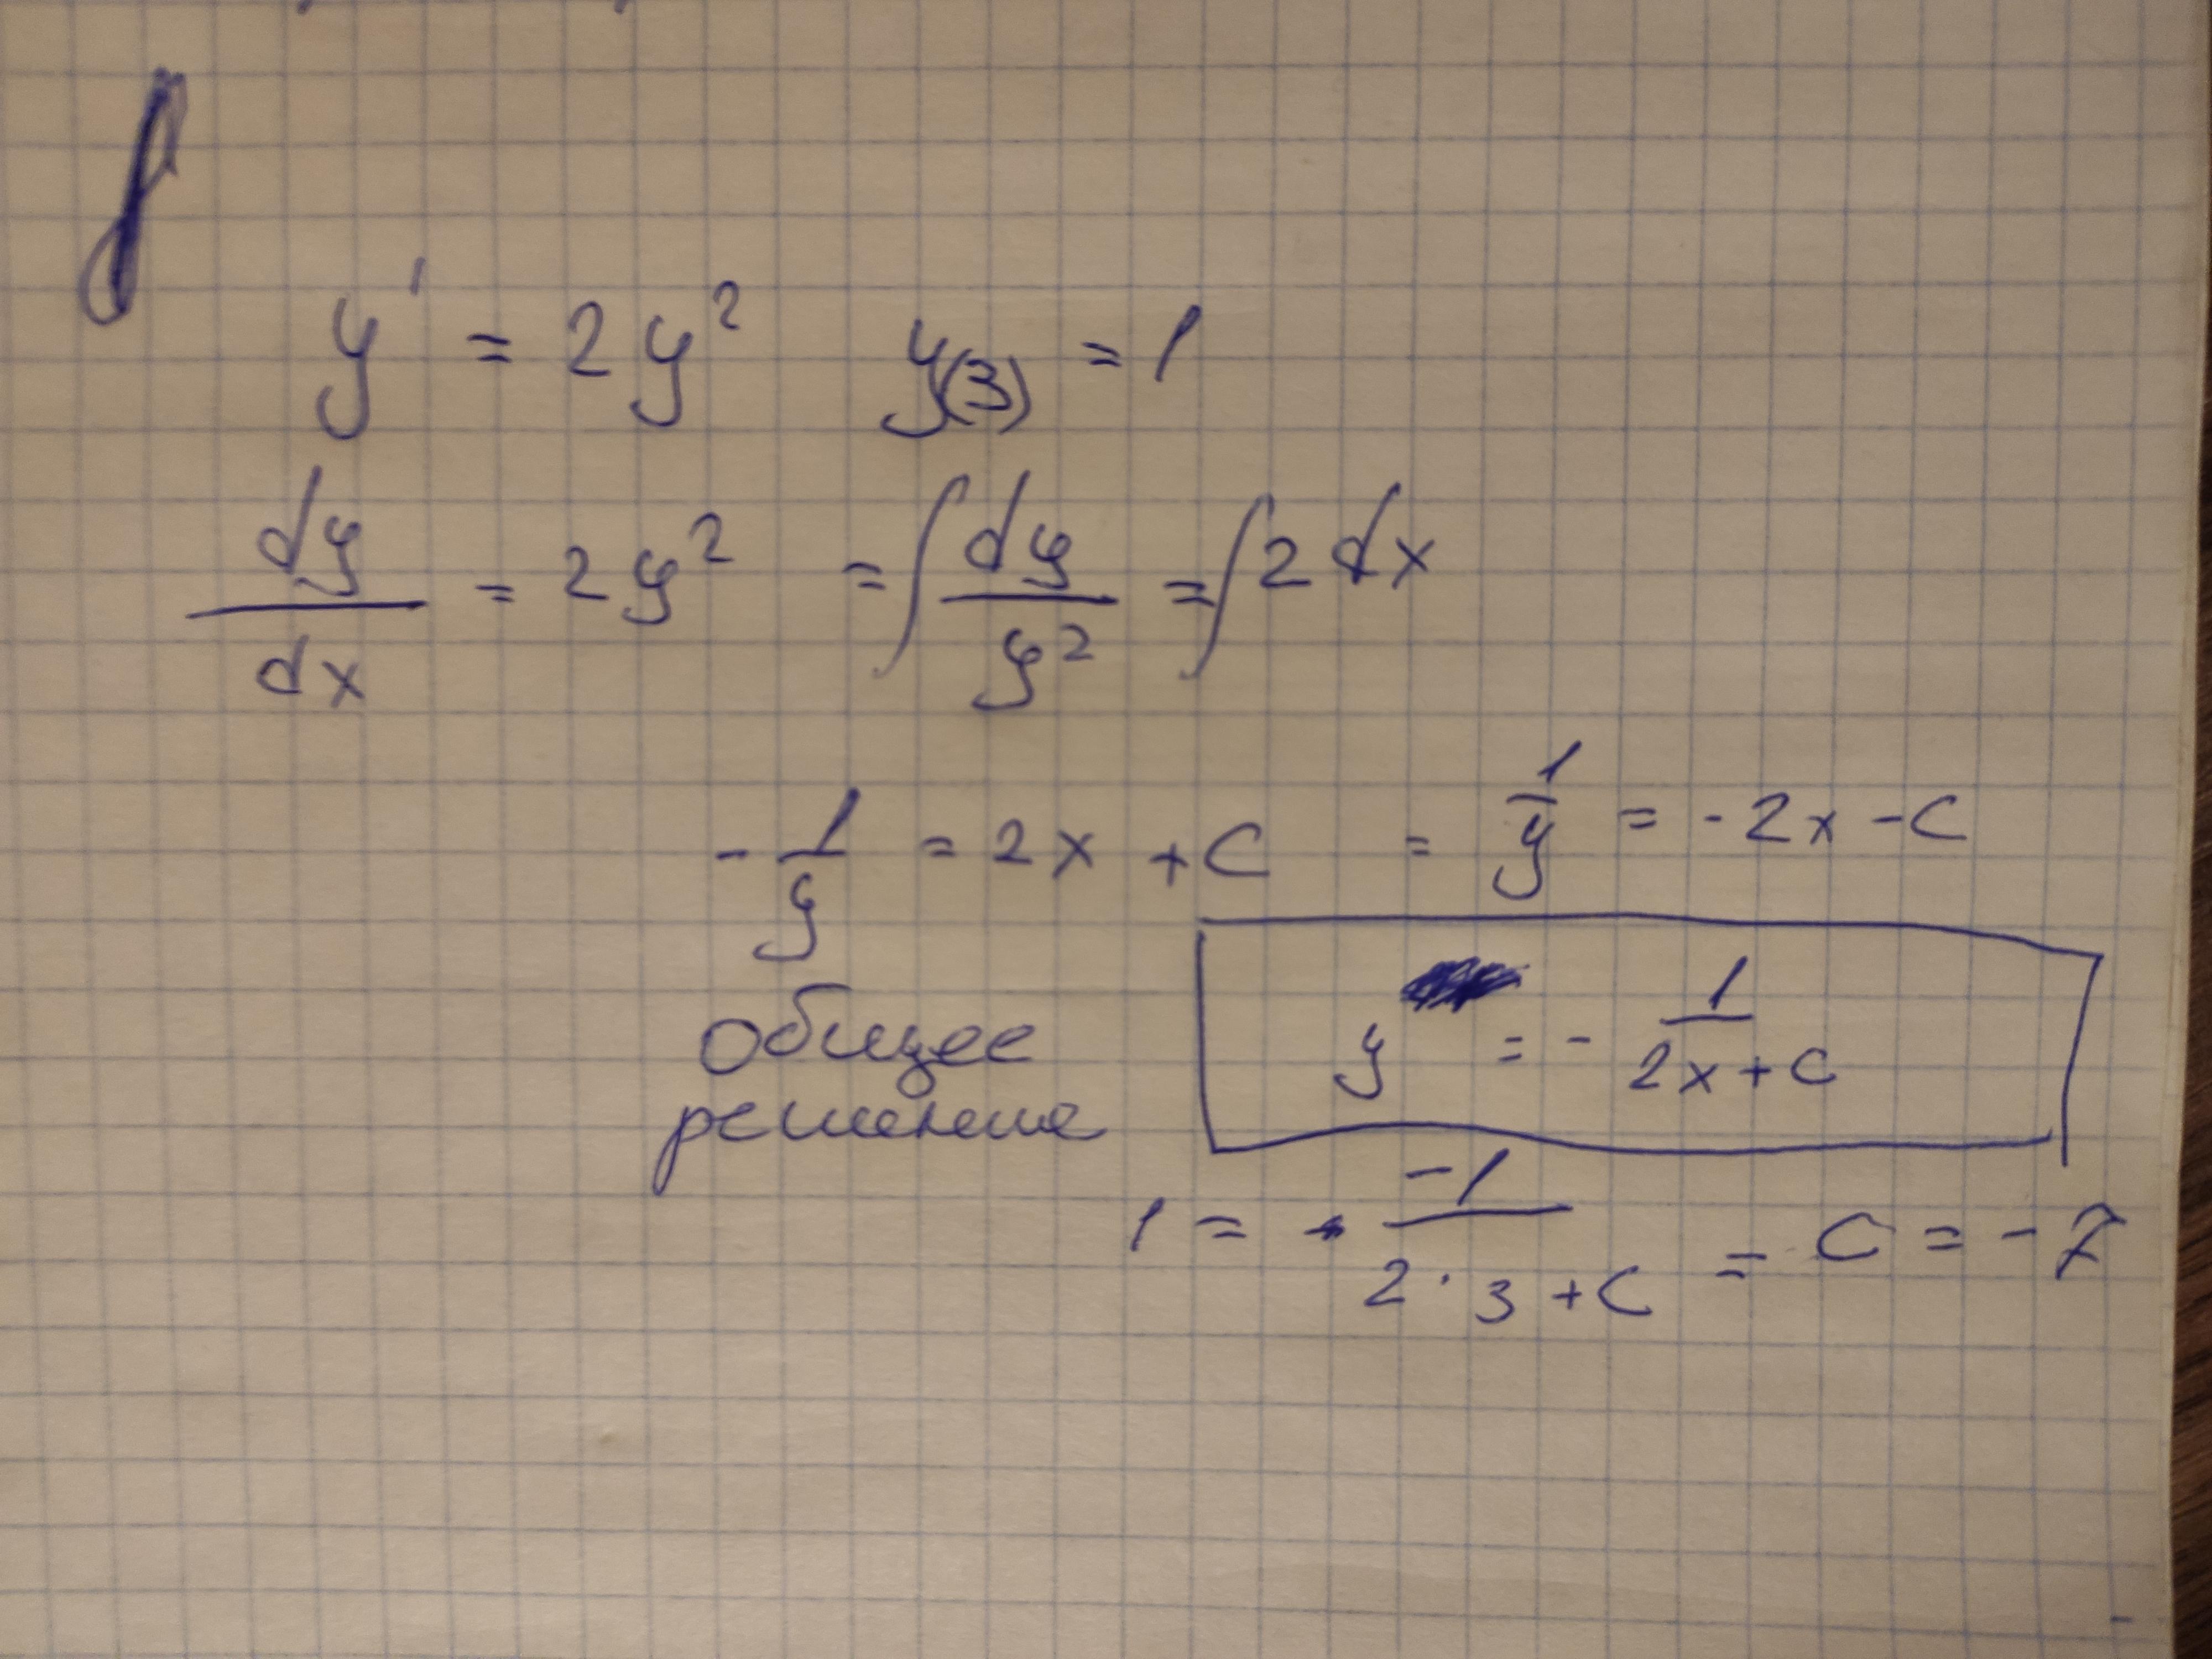 y' = 2y² y(3) = 1
dy/dx = 2y² = ∫ dy/y² = ∫ 2 dx
- 1/y = 2x + C = 1/y = - 2x - C
общее
решение
y = - 1/(2x + C)
1 = -1/(2 · 3 + C) = C = - 7